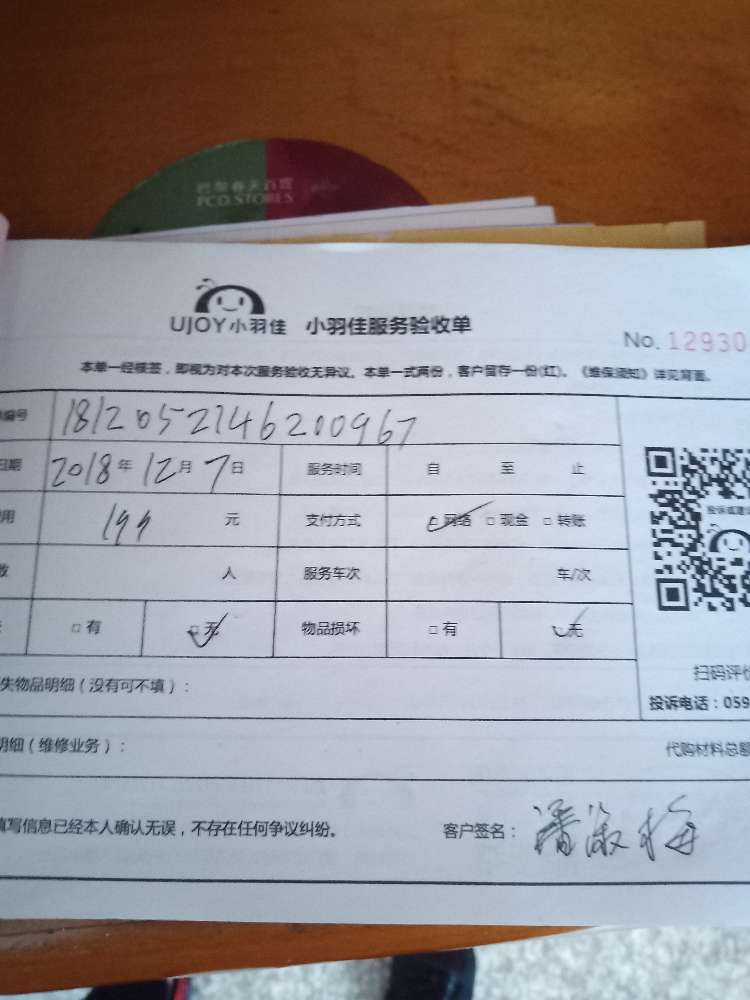 巴黎春天百货
PCD.STORES
UJOY小羽佳 小羽佳服务验收单
No. 12930
本单一经核签，即视为对本次服务验收无异议。本单一式两份，客户留存一份(红)。《维保须知》详见背面。
编号 1812052146200967
日期 2018年12月7日 服务时间 自 至 止
用 199 元 支付方式 网络 现金 转账
数 人 服务车次 车/次
有 无 物品损坏 有 无
扫码评价
失物品明细（没有可不填）：
投诉电话：059
明细（维修业务）： 代购材料总额
填写信息已经本人确认无误，不存在任何争议纠纷。 客户签名：潘淑梅